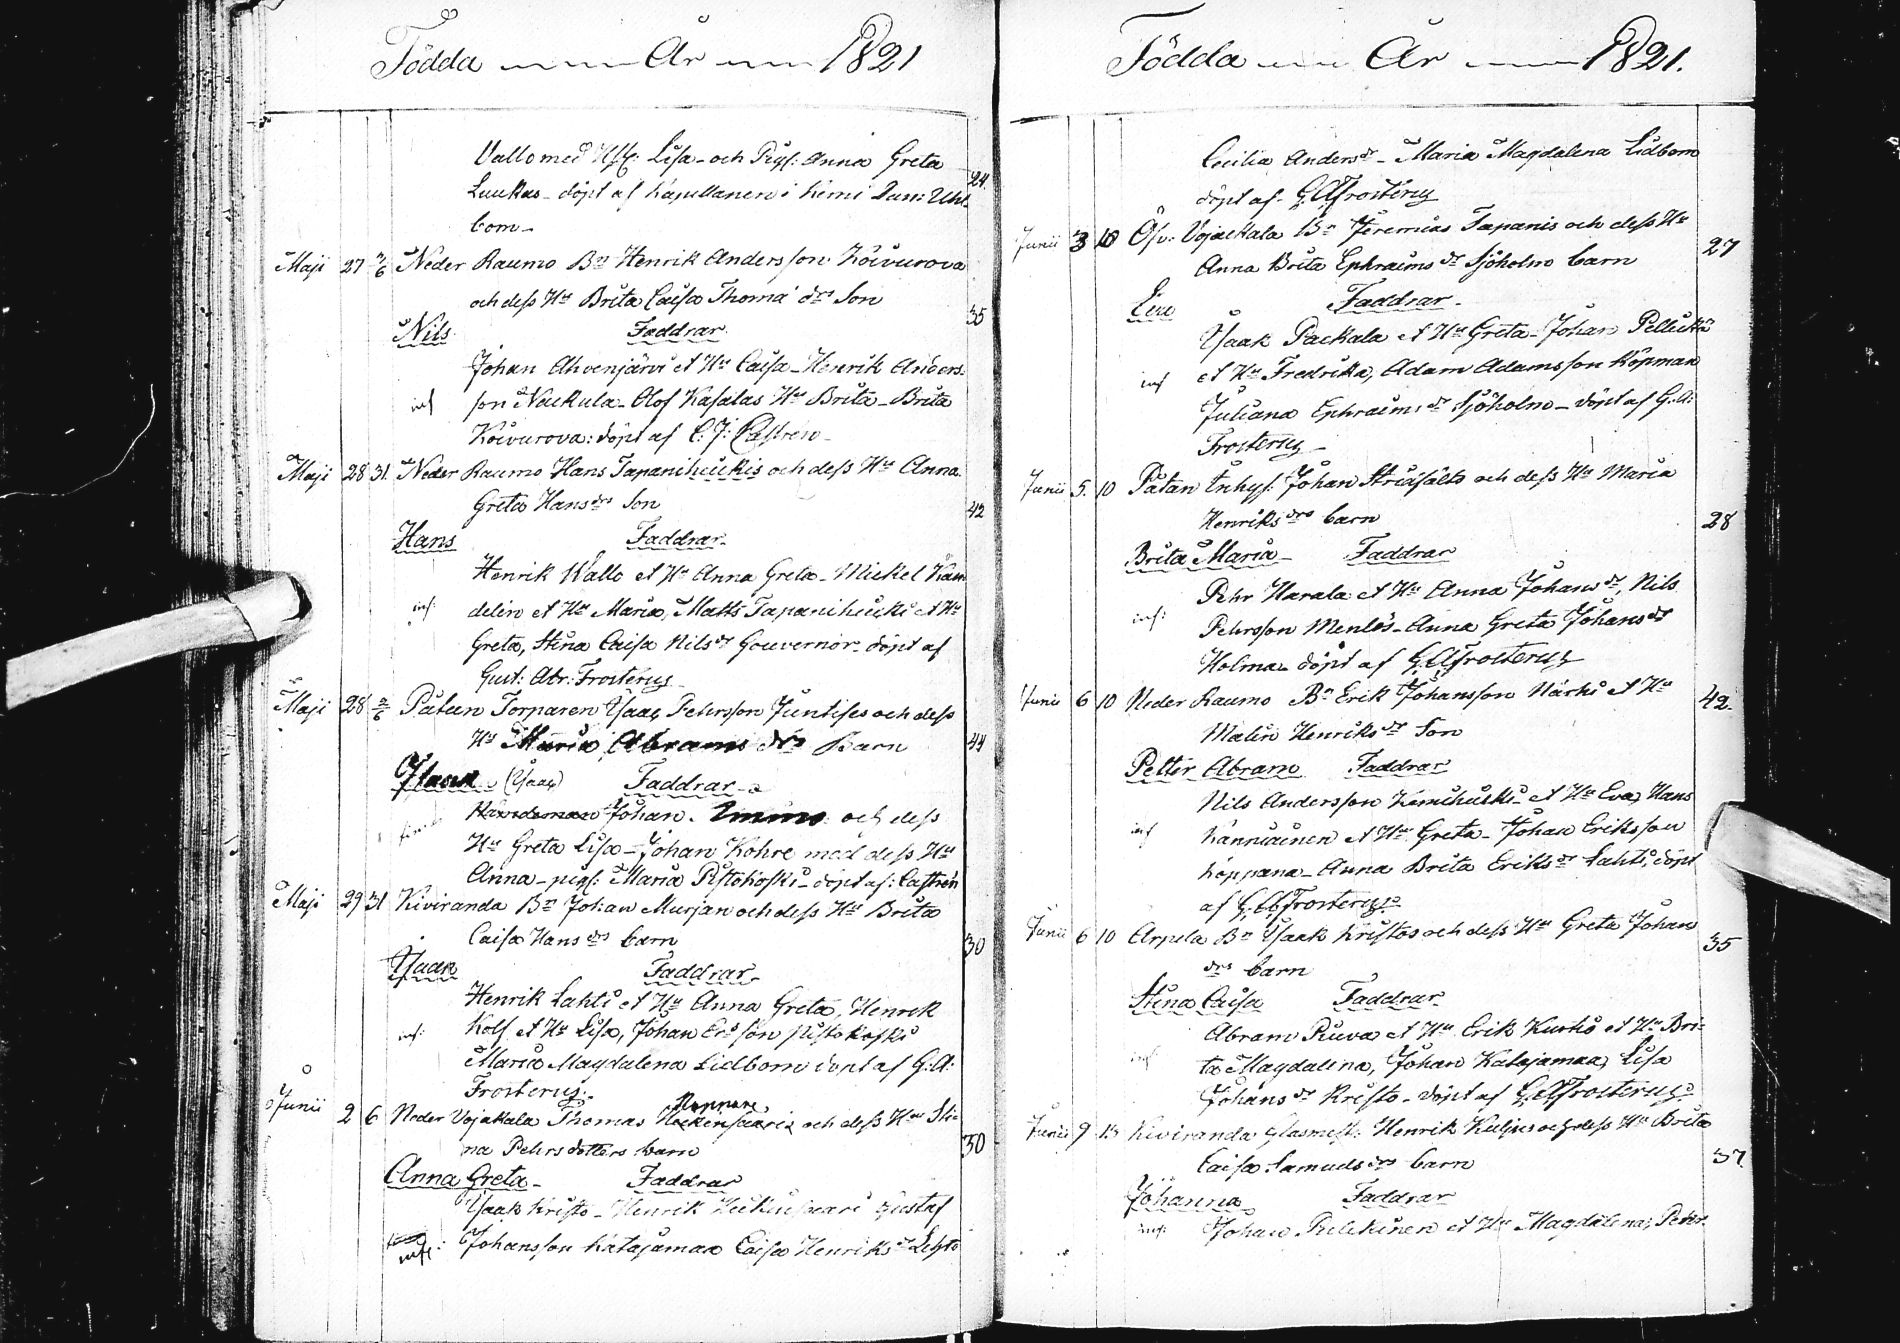 Födda År 1821
Vallo med Lisa och Pig: Anna Greta
24
Luukas döpt af Kapellanen i Kemi Dan: Uhl
bom
Maji 27 2/6 Neder Raumo Bn Henrik Andersson Koivurova
och dess Hu Brita Caisa Thomæ drs Son
35
Nils Faddrar
Johan Ahvenjärvi et Hu Caisa Henrik Anders
inf son Naukula Olof Kasalas Hu Brita Brita
Koivurova: döpt af C: J: Castrén
Maji 28 31. Neder Raumo Hans Tapanihuikis och dess Hu Anna
Greta Hans drs Son
42
Hans Faddrar
Henrik Wallo et Hu Anna Greta Mickel Kan
inf: delin et Hu Maria, Matts Tapanihuiki et Hu
Greta, Stina Caisa Nils dr Gouvernör döpt af
Gust: Abr: Frosterus
Maji 28 2/6 Pateen Torparen Isaac Pehrsson Juntises och dess
Hu Maria Abrams drs Barn
44
Isaak (Isaac) Faddrar
Johan och dess
Hu Greta Lisa Johan Kohre med dess Hu
Anna pig: Maria Pistokoski döpt af: Castrén
Maji 29 31 Kiviranda Bn Johan Murjan och dess Hu Brita
Caisa Hans drs barn
30
Isaak Faddrar
Henrik Lahti et Hu Anna Greta, Henrik
inf: Kolf et Hu Lisa, Johan Ers son Pistokoski
Maria Magdalena Lidbom döpt af G: A:
Frosterus.
Junii 2 6 Neder Vojakala Thomas och dess Hu Sti
na Pehrs dotters barn
30
Anna Greta Faddrar
Isaak Kristo Henrik Gustaf
inf: Johansson Katajamaa Caisa Henriks dr Lehto
Födda År 1821.
Cecilia Anders dr Maria Magdalena Lidbom
döpt af G. A. Frosterus
Junii 3 10 Öfv: Vojackala Bn Jeremias Tapanis och dess Hu
27
Anna Brita Ephraims dr Sjöholm barn
Eva Faddrar
Isaak Packala et Hu Greta Johan Pellickä
inf et Hu Fredrika, Adam Adamsson Köpman
Juliana Ephraims dr Sjöholm döpt af G: A:
Frosterus
Junii 5. 10 Patan Inhys: Johan och dess Hu Maria
Henriks drs barn
28
Brita Maria Faddrar
Pehr Harala et Hu Anna Johans dr, Nils
inf: Pehrsson Menlös Anna Greta Johans dr
Holma döpt af G. A. Frosterus
Junii 6 10 Neder Raumo Bn Erik Johansson Närhi et Hu
42.
Malin Henriks dr Son
Petter Abram Faddrar
Nils Andersson Kemihuiki et Hu Eva, Hans
inf Känniäinen et Hu Greta Johan Eriksson
Koppana Anna Brita Eriks dr Lahti, döpt
af G. A. Frosterus
Junii 6 10 Arpela Bn Isaak Kristos och dess Hu Greta Johan
35
drs barn
Stina Caisa Faddrar
Abram Ruva et Hu Erik Kurki et Hu Bri=
inf ta Magdalena, Johan Katajamaa, Lisa
Johans dr Kristo döpt af G. A. Frosterus
Junii 9 Kiviranda Glasmest: Henrik Kuljus och dess Hu Brita
Caisa Samuels drs barn
37
Johanna Faddrar
inf: Johan Pulckinen et Hu Magdalena, Pehr